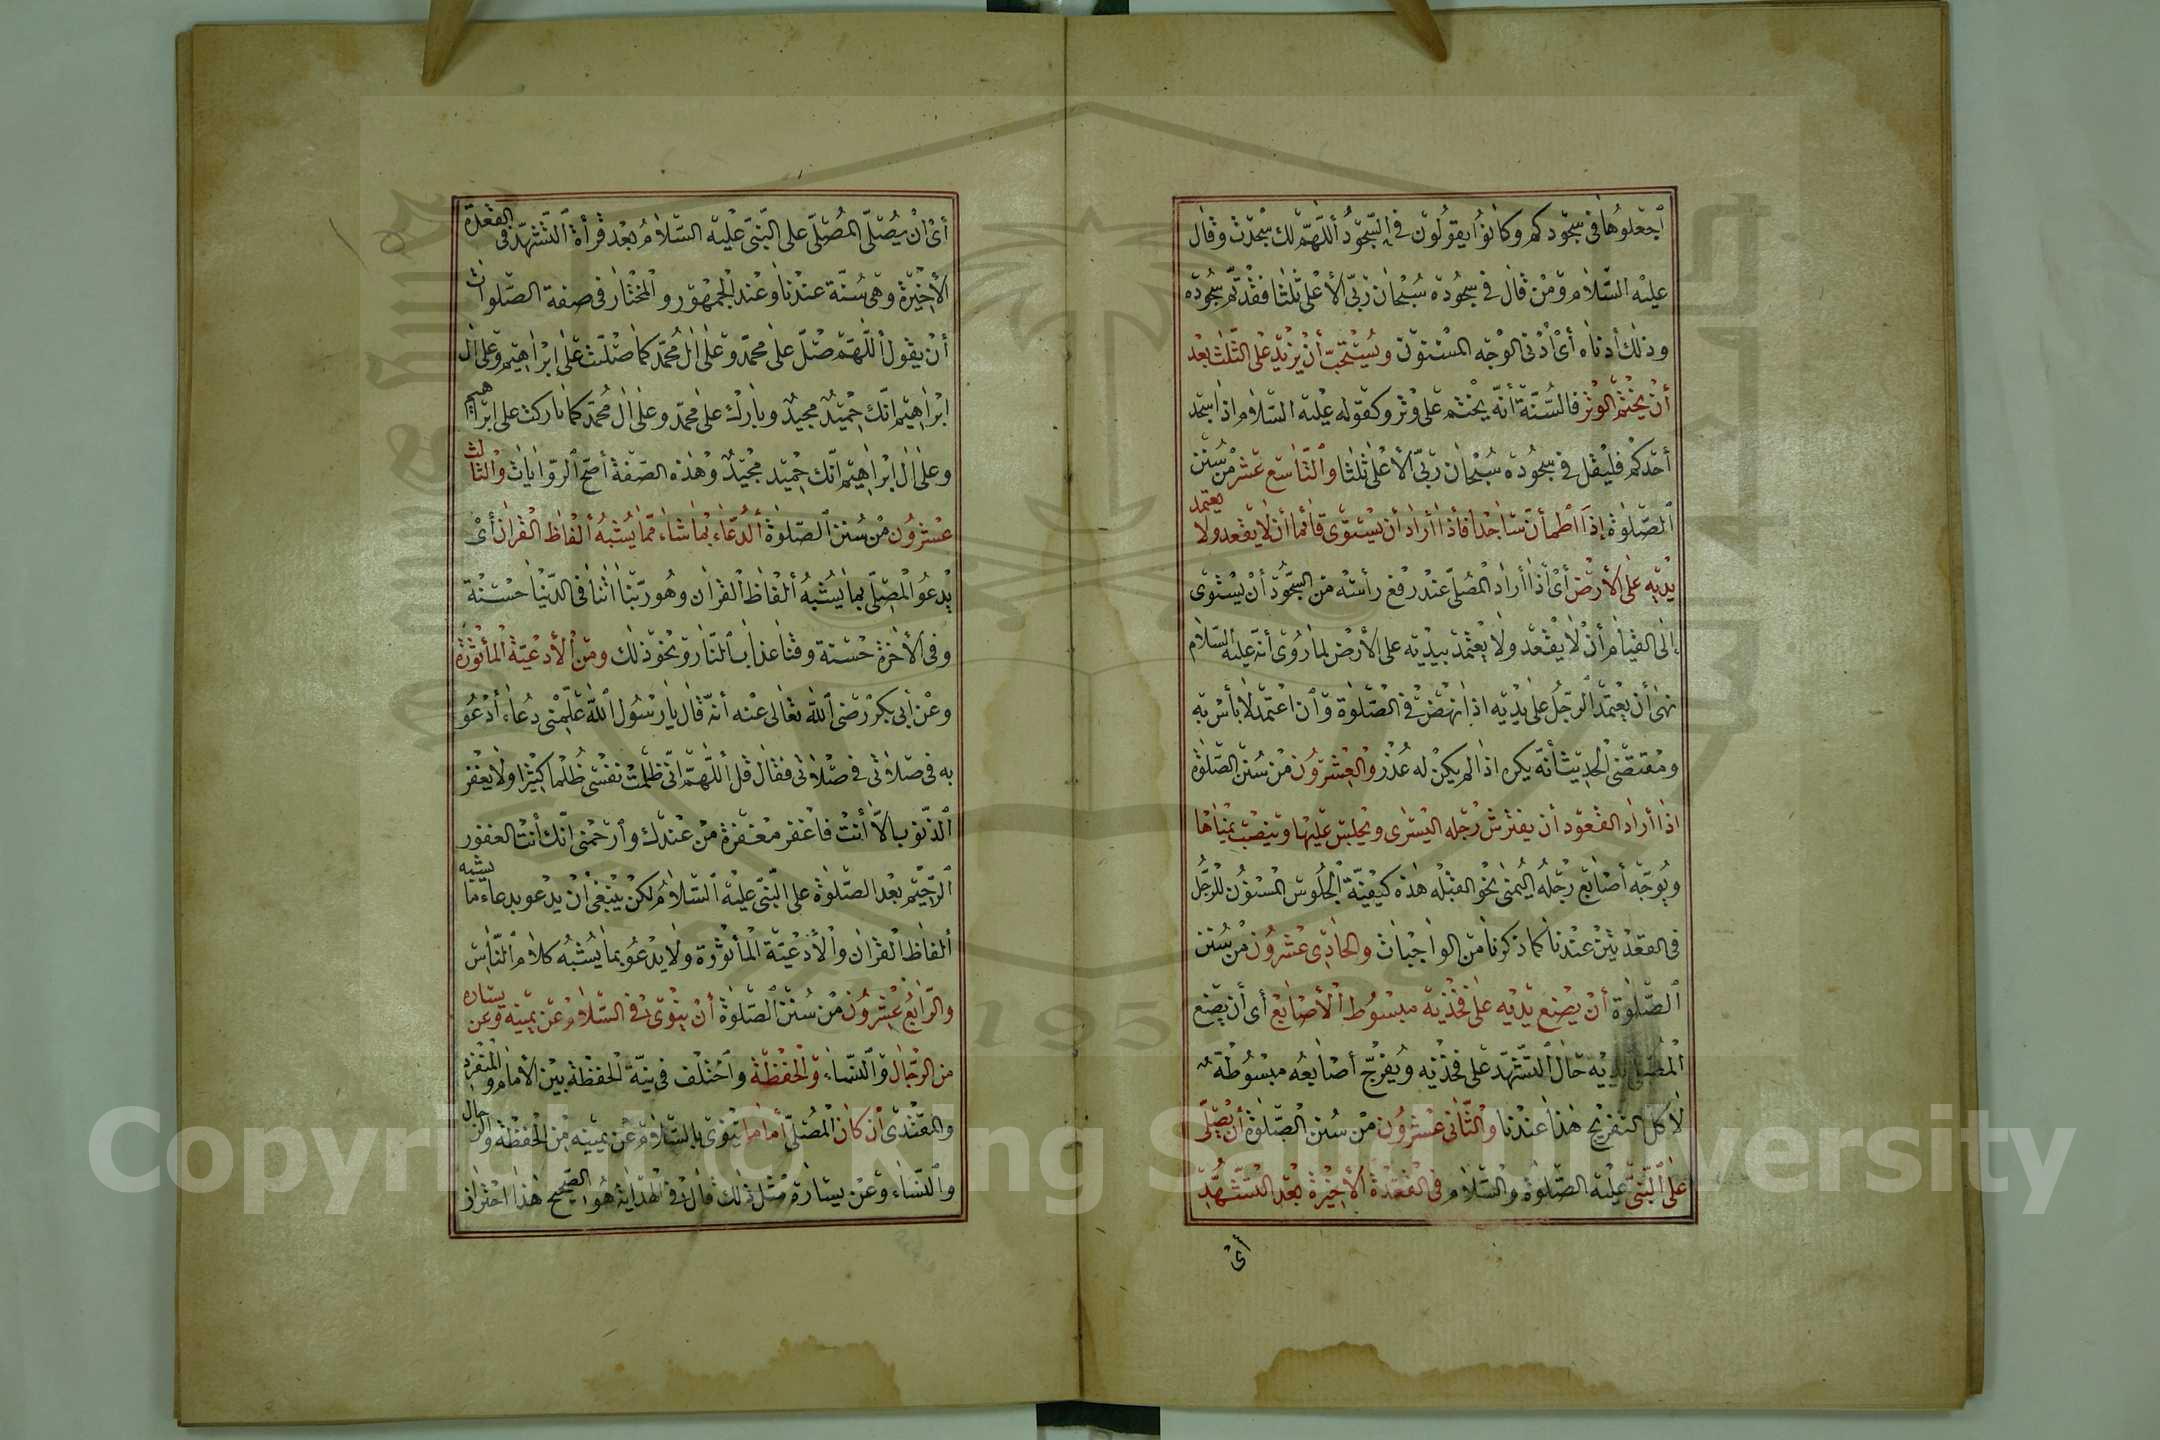 اجعلوها في سجودكم وكانوا يقولون في السجود اللهم لك سجدت وقال
عليه السلام ومن قال في سجوده سبحان ربي الأعلى ثلثا فقد تم سجوده
وذلك أدناه أي أدنى الوجه المسنون ويستحب أن يزيد على الثلث بعد
أن يختم الوتر فالسنة أنه يختم على وتر وكقوله عليه السلام اذا سجد
أحدكم فليقل في سجوده سبحان ربي الأعلى ثلثا والتاسع عشر من سنن
الصلوة إذا اطمأن ساجدا فاذا أراد أن يستوى قائما أن لا يقعد ولا يعتمد
يديه على الأرض أي اذا أراد المصلي عند رفع رأسه من السجود أن يستوى
إلى القيام أن لا يقعد ولا يعتمد بيديه على الأرض لما روى أنه عليه السلام
نهى أن يعتمد الرجل على يديه اذا نهض في الصلوة وان اعتمد لا بأس به
ومقتضى الحديث أنه يكره اذا لم يكن له عذر والعشرون من سنن الصلوة
اذا أراد القعود أن يفترش رجله اليسرى ويجلس عليها وينصب يمناها
ويوجه أصابع رجله اليمنى نحو القبله هذه كيفية الجلوس المسنون للرجل
في القعدتين عندنا كما ذكرنا من الواجبات والحادي عشرون من سنن
الصلوة أن يضع يديه على فخذيه مبسوط الأصابع أي أن يضع
المصلي يديه حال التشهد على فخذيه ويفرج أصابعه مبسوطة
لا كل التفريج هذا عندنا والثاني عشرون من سنن الصلوة أن يصلى
على النبي عليه الصلوة والسلام في القعدة الأخيرة بعد التشهد
أي
أي ان يصلى المصلى على النبي عليه السلام بعد قرأة التشهد في القعدة
الأخيرة وهي سنة عندنا وعند الجمهور والمختار في صفة الصلوات
أن يقول اللهم صل على محمد وعلى ال محمد كما صليت على ابراهيم وعلى ال
ابراهيم انك حميد مجيد وبارك على محمد وعلى ال محمد كما باركت على ابراهيم
وعلى ال ابراهيم انك حميد مجيد وهذه الصفة أصح الروايات والثالث
عشرون من سنن الصلوة الدعاء بما شاء مما يشبه ألفاظ القرآن أي
يدعو المصلى بما يشبه ألفاظ القرآن وهو ربنا اتنا في الدنيا حسنة
وفي الأخرة حسنة وقنا عذاب النار ونحو ذلك ومن الأدعية المأثورة
وعن أبي بكر رضى الله تعالى عنه أنه قال يا رسول الله علمني دعاء أدعو
به في صلاتي في صلاتي فقال قل اللهم اني ظلمت نفسي ظلما كثيرا ولا يغفر
الذنوب الا أنت فاغفر مغفرة من عندك وارحمني انك أنت الغفور
الرحيم بعد الصلوة على النبي عليه السلام لكن ينبغي أن يدعو بدعاء ما يشبه
ألفاظ القرآن والأدعية المأثورة ولا يدعو بما يشبه كلام الناس
والرابع عشرون من سنن الصلوة أن ينوى في السلام عن يمينه وعن يساره
من الرجال والنساء والحفظة واختلف في نية الحفظة بين الأمام والمنفرد
والمقتدى أن كان المصلي أماما ينوى بالسلام عن يمينه من الحفظة والرجال
والنساء وعن يساره مثل ذلك قال في الهداية هو الصحيح هذا احتراز
Copyright © King Saud University
1957